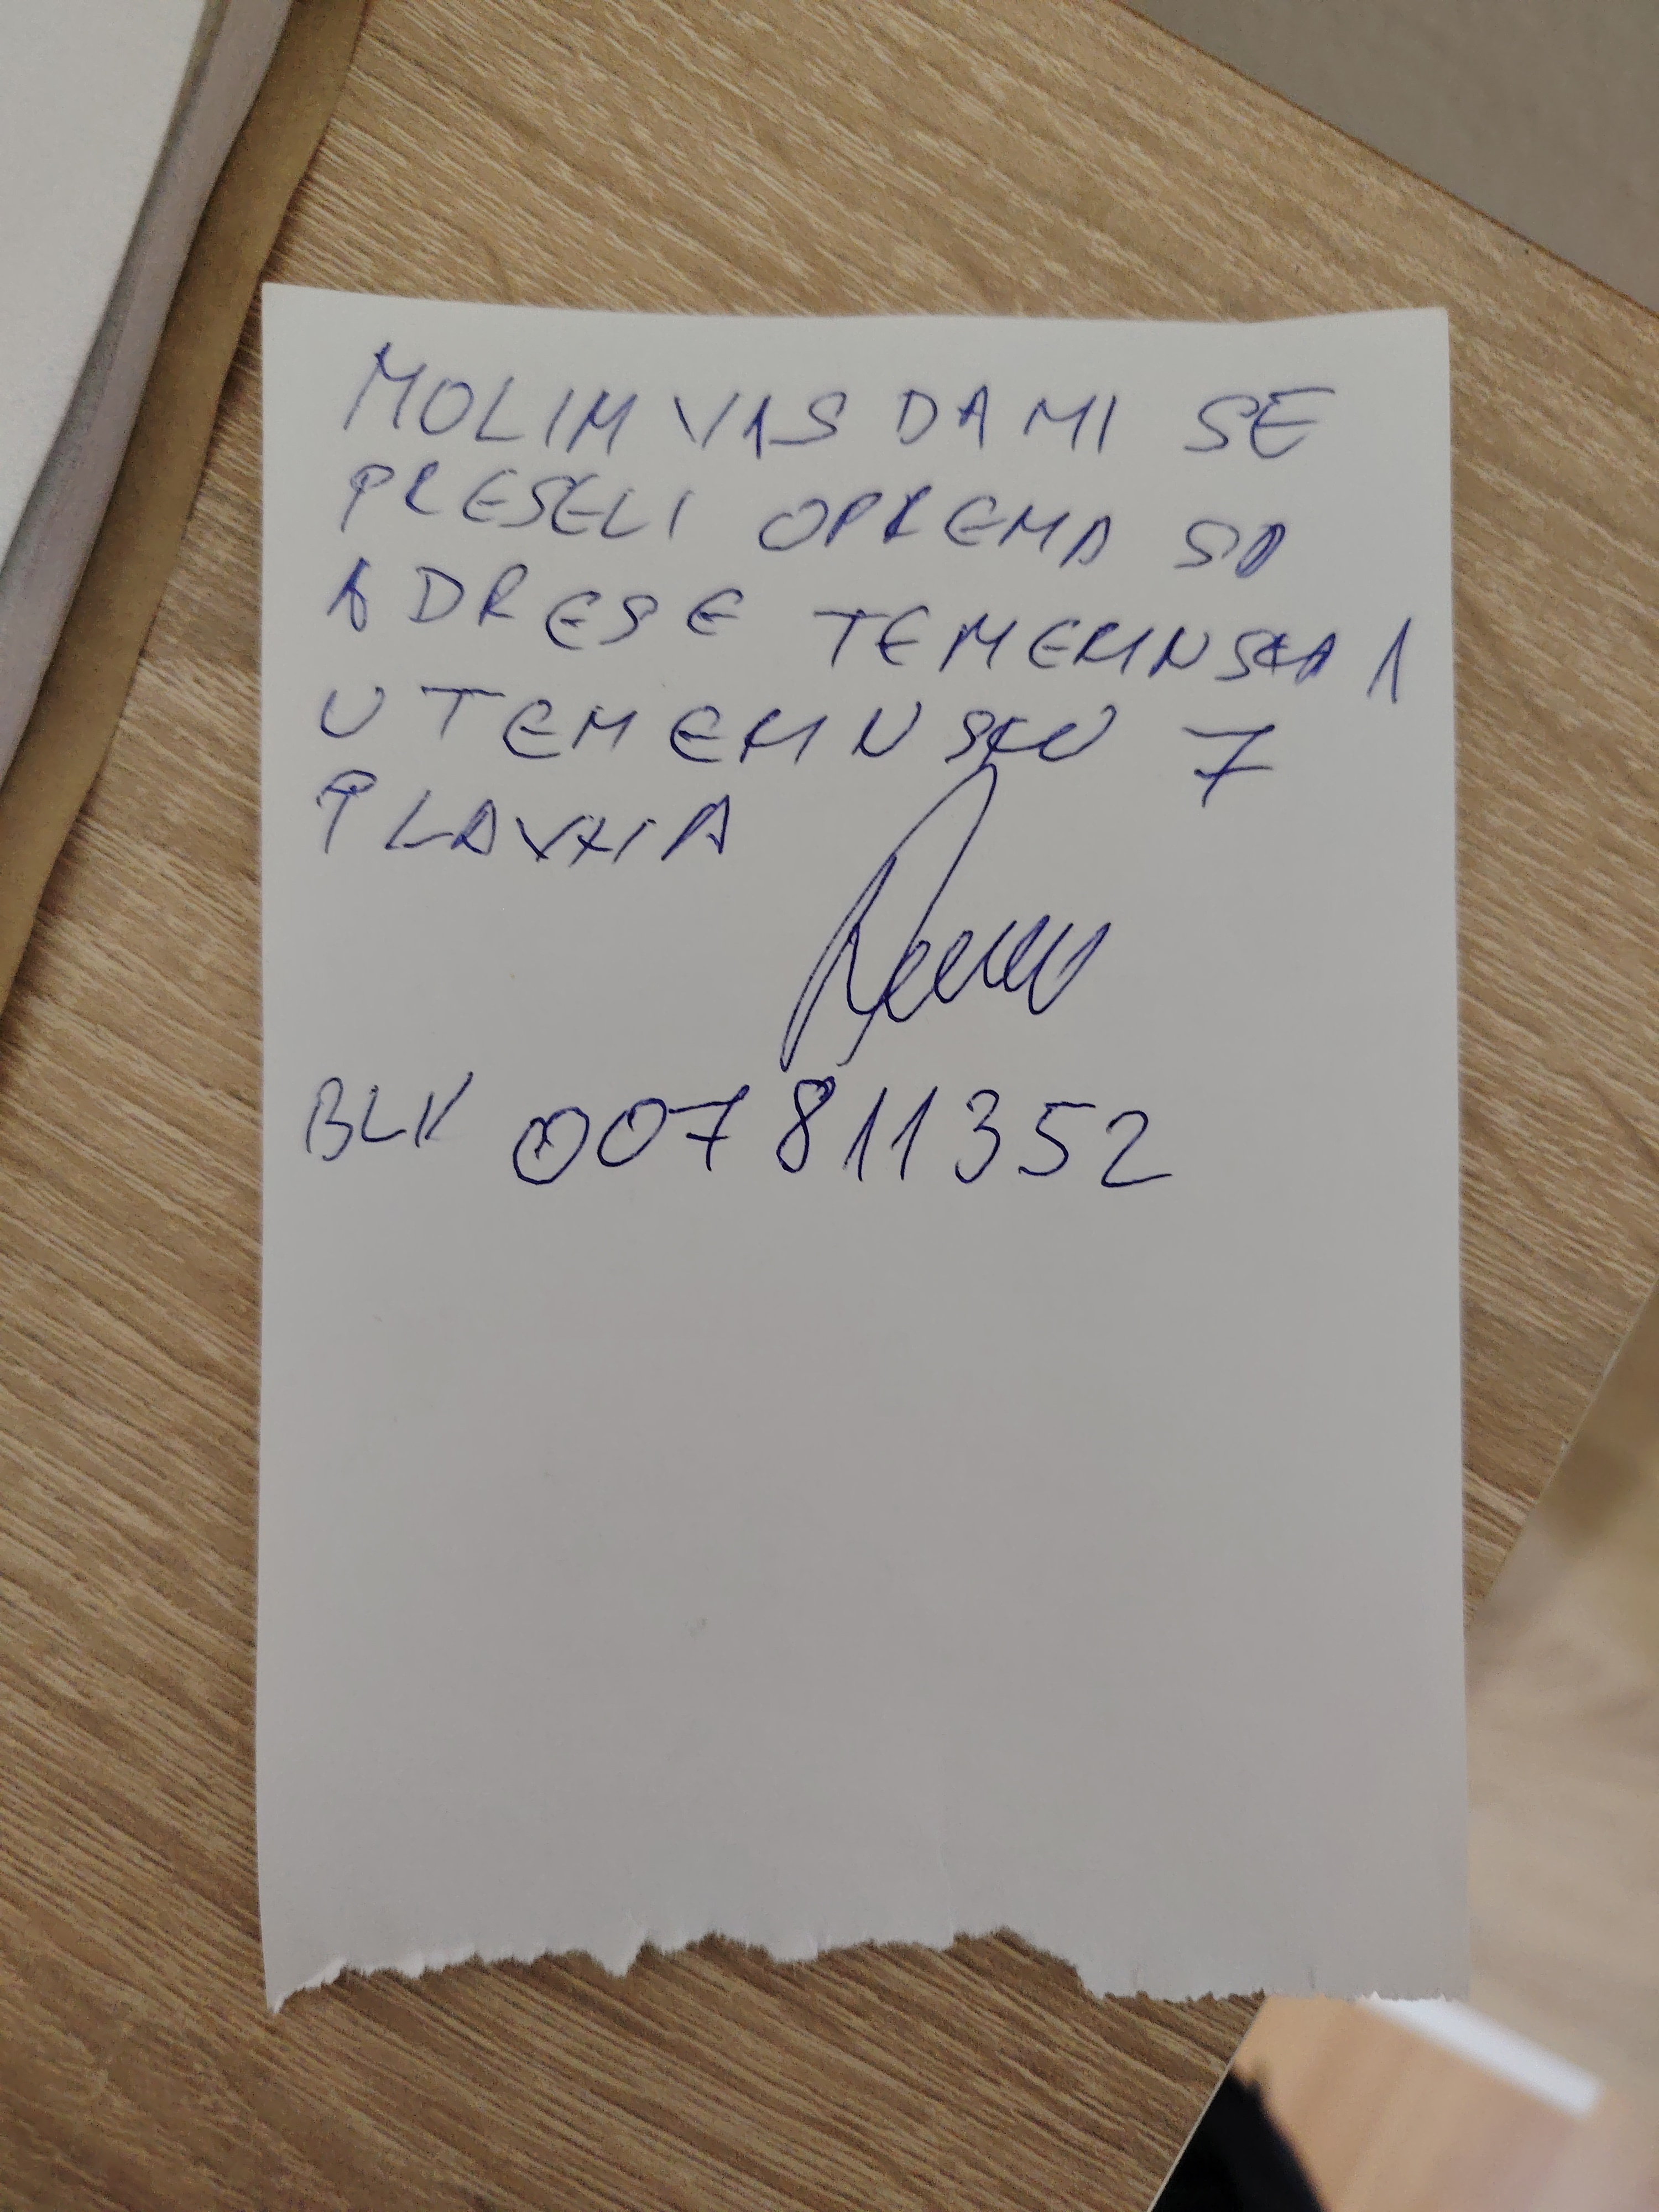 MOLIM VAS DA MI SE
PRESELI OPREMA SA
ADRESE TEMERINSKA 1
U TEMERINSKU 7
PLAVNA
BLK 007811352